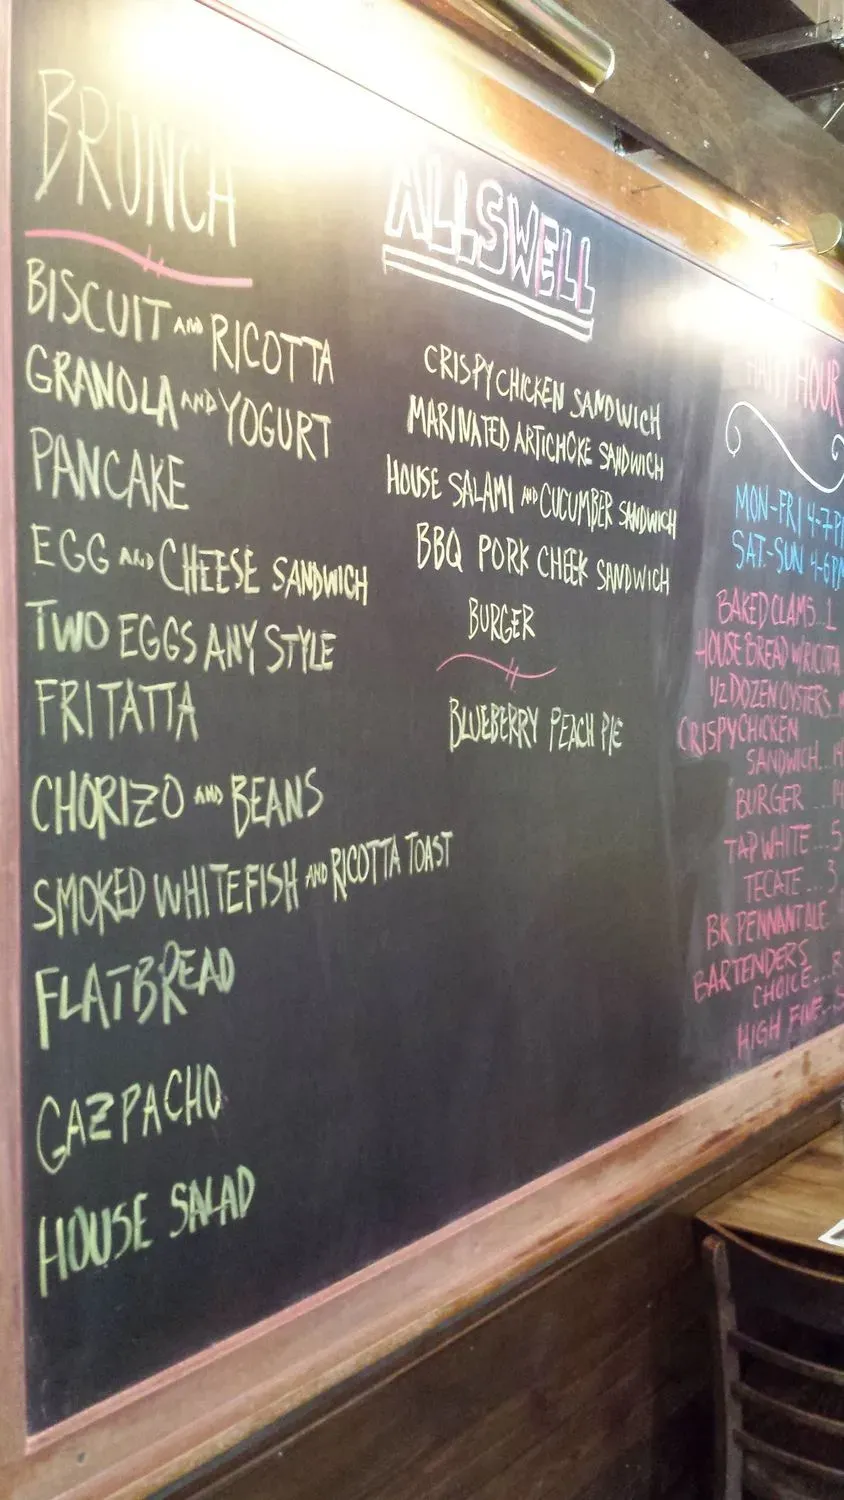 BRUNCH
BISCUIT AND RICOTTA
GRANOLA AND YOGURT
PANCAKE
EGG AND CHEESE SANDWICH
TWO EGGS ANY STYLE
FRITATTA
CHORIZO AND BEANS
SMOKED WHITEFISH AND RICOTTA TOAST
FLATBREAD
GAZPACHO
HOUSE SALAD
ALLSWELL
CRISPY CHICKEN SANDWICH
MARINATED ARTICHOKE SANDWICH
HOUSE SALAMI AND CUCUMBER SANDWICH
BBQ PORK CHEEK SANDWICH
BURGER
BLUEBERRY PEACH PIE
HAPPY HOUR
MON-FRI 4-7P
SAT-SUN 4-6PM
BAKED CLAMS..1
HOUSE BREAD W/RICOTTA
1/2 DOZEN OYSTERS..
CRISPY CHICKEN
SANDWICH...14
BURGER...14
TAP WHITE...5
TECATE...3
BK PENNANT ALE
BARTENDERS
CHOICE...8
HIGH FIVE...